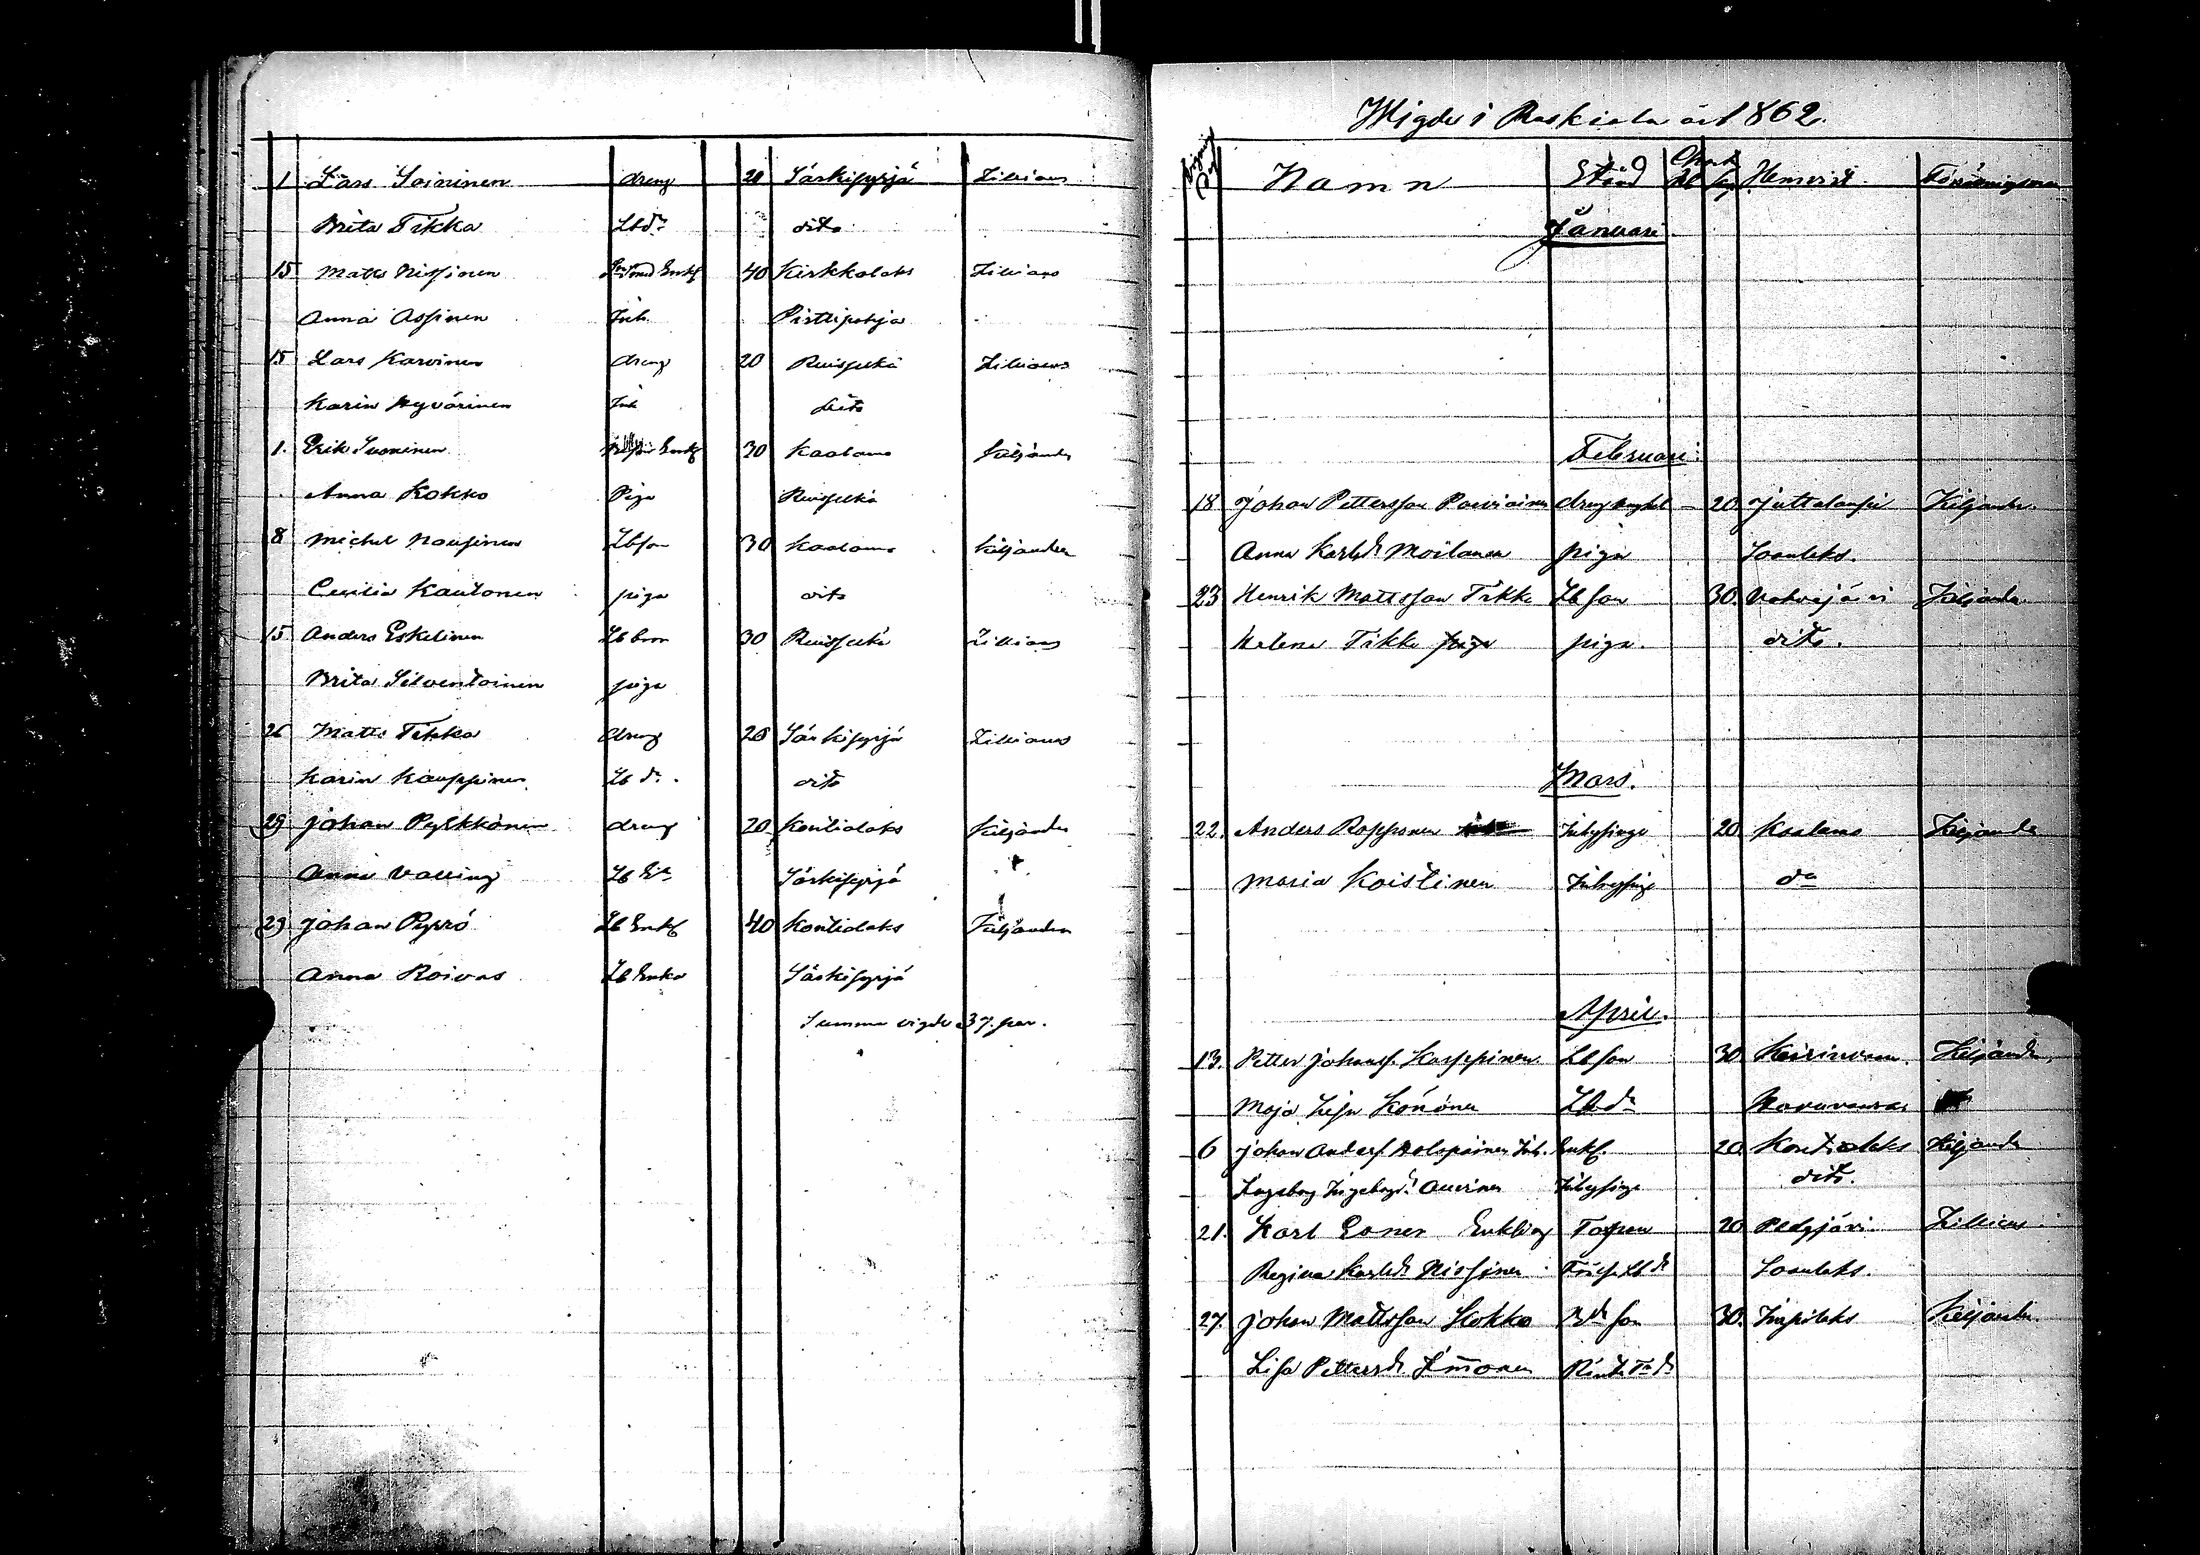 1 Lars Soininen dreng 20 Särkisyrjä Zillians
Brita Tikka Lbdr dito
15 Matts Nissinen Enkl 40 Kirkkolaks Zillians
Anna Assinen Inh. Pirttipohja
15 Lars Karvinen dreng 20 Ruisselkä Zillians
Karin Hyvärinen Inh dito
1. Erik Suoninen Enkl 30 Kaalamo Kiljander
Anna Kokko Piga Ruisselkä
8 Michel Nousinen Lbson 30 Kaalamo Kiljander
Cecilia Kautonen piga dito
15 Anders Eskelinen Lb bror 30 Ruisselkä Zillians
Brita Silventoinen piga
26 Matts Tikka dreng 20 Särkisyrjä Zillians
Karin Kauppinen Lb dr. dito
29 Johan Pylkkönen dreng 20 Kontiolaks Kiljander
Anna Valling Lb Särkisyrjä
29 Johan Pyrrö Lb Enkl 40 Kontiolaks Kiljander
Anna Roivas Lb Enka Särkisyrjä
Summa vigde 37. par.
Wigde i Ruskiala år 1862.
Namn Stånd Hemvist
Januari
Februari
18 Johan Pettersson Parviainen dreng 20. Juttalansii Kiljander
Anna Karlsdr Moilanen piga Soanlaks.
23 Henrik Mattsson Tikka Lb son 30. Vahvajärvi Kiljander
Helena Tikka piga piga. dito.
Mars.
22. Anders Ropponen Inhysinge 20. Kaalamo Kiljander
Maria Koistinen Inhysinge do
April.
13. Petter Johanss. Kauppinen Lb son 30. Kiljander
Maja Lisa Könönen Lb dr
6 Johan Anderss. Inh. Enkl. 20. Kontiolaks Kiljander
Ingeborg Auvinen Inhysinge dito.
21. Karl Enkling 20 Pelgjärvi Zillians
Regina Karlsdr Nissinen Lb dr Soanlaks.
27. Johan Mattsson Kokko son 30. Impilaks Kiljander.
Lisa Pettersdr Immonen